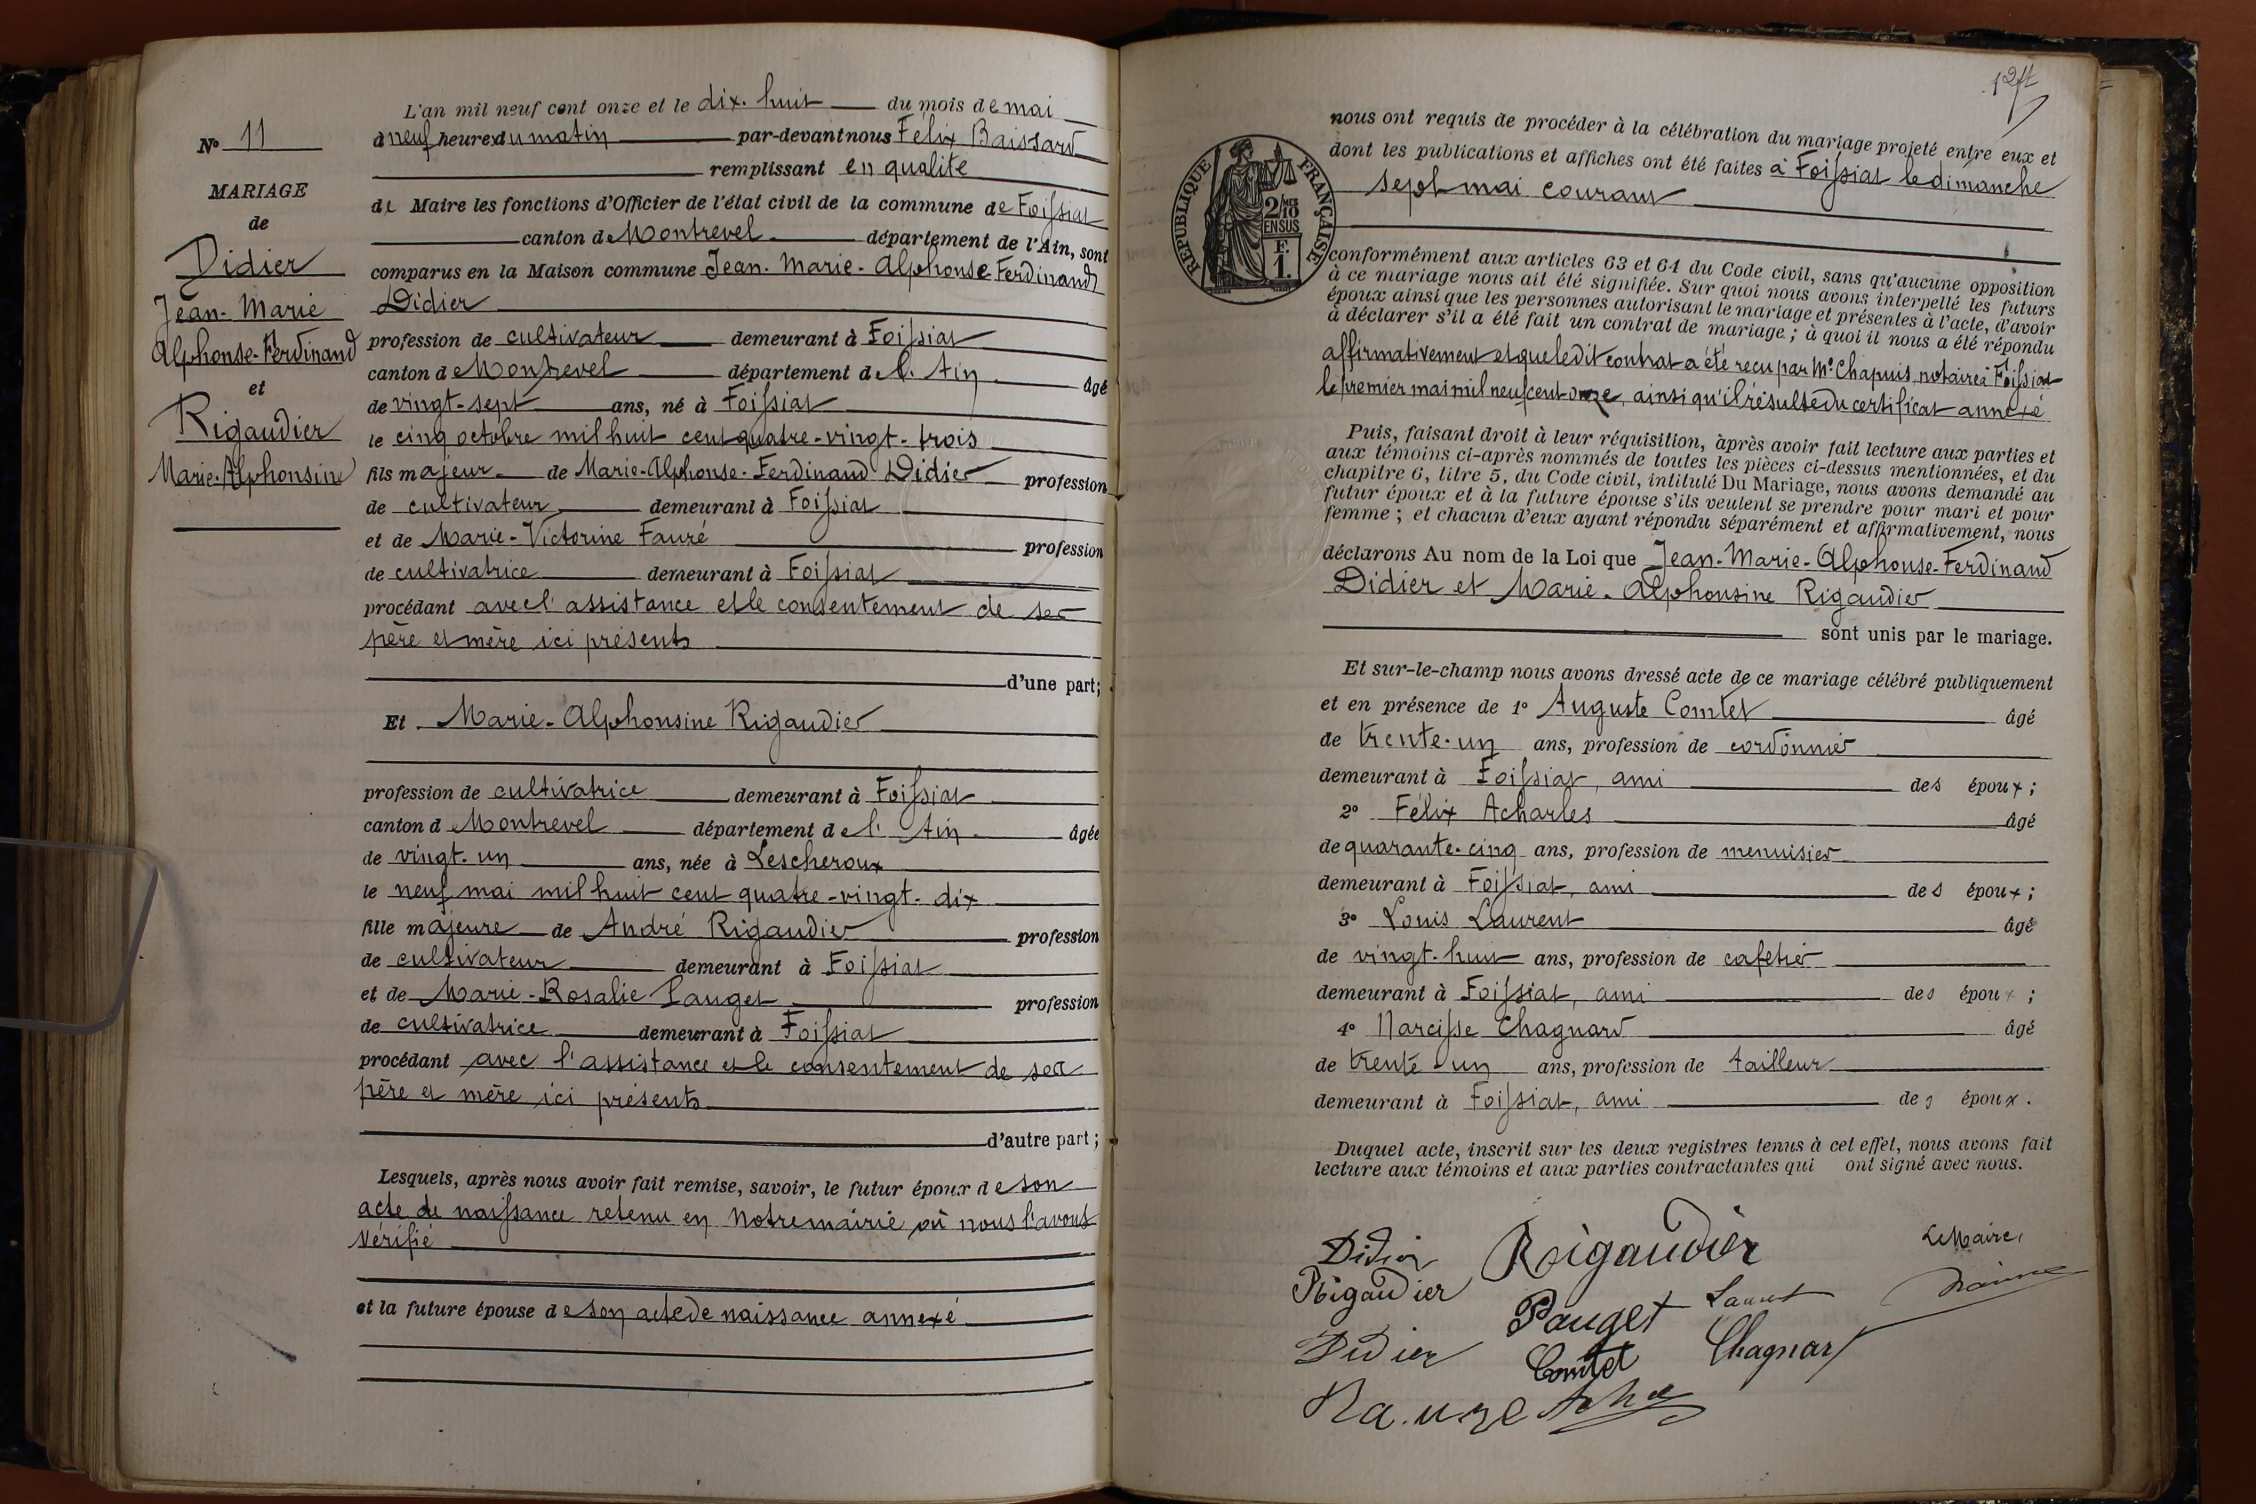 L'an mil neuf cent onze et le dix-huit du mois de mai
N° 11
à neuf heures du matin par-devant nous Félix Baissard
remplissant en qualité
MARIAGE
de Maire les fonctions d'Officier de l'état civil de la commune de Foissiat
de
canton de Montrevel département de l'Ain, sont
Didier
comparus en la Maison commune Jean-Marie-Alphonse Ferdinand
Jean-Marie
Didier
Alphonse-Ferdinand
profession de cultivateur demeurant à Foissiat
canton de Montrevel département de l'Ain âgé
et
de vingt-sept ans, né à Foissiat
Rigaudier
le cinq octobre mil huit cent quatre-vingt-trois
Marie-Alphonsine
fils majeur de Marie-Alphonse-Ferdinand Didier profession
de cultivateur demeurant à Foissiat
et de Marie-Victorine Fauré profession
de cultivatrice demeurant à Foissiat
procédant avec l'assistance et le consentement de ses
père et mère ici présents
d'une part;
Et Marie-Alphonsine Rigaudier
profession de cultivatrice demeurant à Foissiat
canton d Montrevel département de l'Ain âgée
de vingt-un ans, née à Lescheroux
le neuf mai mil huit cent quatre-vingt-dix
fille majeure de André Rigaudier profession
de cultivateur demeurant à Foissiat
et de Marie-Rosalie Pauget profession
de cultivatrice demeurant à Foissiat
procédant avec l'assistance et le consentement de ses
père et mère ici présents
d'autre part;
Lesquels, après nous avoir fait remise, savoir, le futur époux de son
acte de naissance retenu en notre mairie où nous l'avons
vérifié
et la future épouse de son acte de naissance annexé
nous ont requis de procéder à la célébration du mariage projeté entre eux et
dont les publications et affiches ont été faites à Foissiat le dimanche
sept mai courant
RÉPUBLIQUE FRANÇAISE
2/10
EN SUS
F.
1.
conformément aux articles 63 et 64 du Code civil, sans qu'aucune opposition
à ce mariage nous ait été signifiée. Sur quoi nous avons interpellé les futurs
époux ainsi que les personnes autorisant le mariage et présentes à l'acte, d'avoir
à déclarer s'il a été fait un contrat de mariage; à quoi il nous a été répondu
affirmativement et que ledit contrat a été reçu par Me Chapuis notaire à Foissiat
le premier mai mil neuf cent onze, ainsi qu'il résulte du certificat annexé
Puis, faisant droit à leur réquisition, après avoir fait lecture aux parties et
aux témoins ci-après nommés de toutes les pièces ci-dessus mentionnées, et du
chapitre 6, titre 5, du Code civil, intitulé Du Mariage, nous avons demandé au
futur époux et à la future épouse s'ils veulent se prendre pour mari et pour
femme; et chacun d'eux ayant répondu séparément et affirmativement, nous
déclarons Au nom de la Loi que Jean-Marie-Alphonse-Ferdinand
Didier et Marie-Alphonsine Rigaudier
sont unis par le mariage.
Et sur-le-champ nous avons dressé acte de ce mariage célébré publiquement
et en présence de 1° Auguste Comtet âgé
de trente-un ans, profession de cordonnier
demeurant à Foissiat, ami des époux;
2° Félix Acharles âgé
de quarante-cinq ans, profession de menuisier
demeurant à Foissiat, ami des époux;
3° Louis Laurent âgé
de vingt-huit ans, profession de cafetier
demeurant à Foissiat, ami des époux;
4° Narcisse Chagnard âgé
de trente un ans, profession de tailleur
demeurant à Foissiat, ami des époux.
Duquel acte, inscrit sur les deux registres tenus à cet effet, nous avons fait
lecture aux témoins et aux parties contractantes qui ont signé avec nous.
Didier Rigaudier Le Maire,
Rigaudier
Pauget
Didier Comtet Chagnard